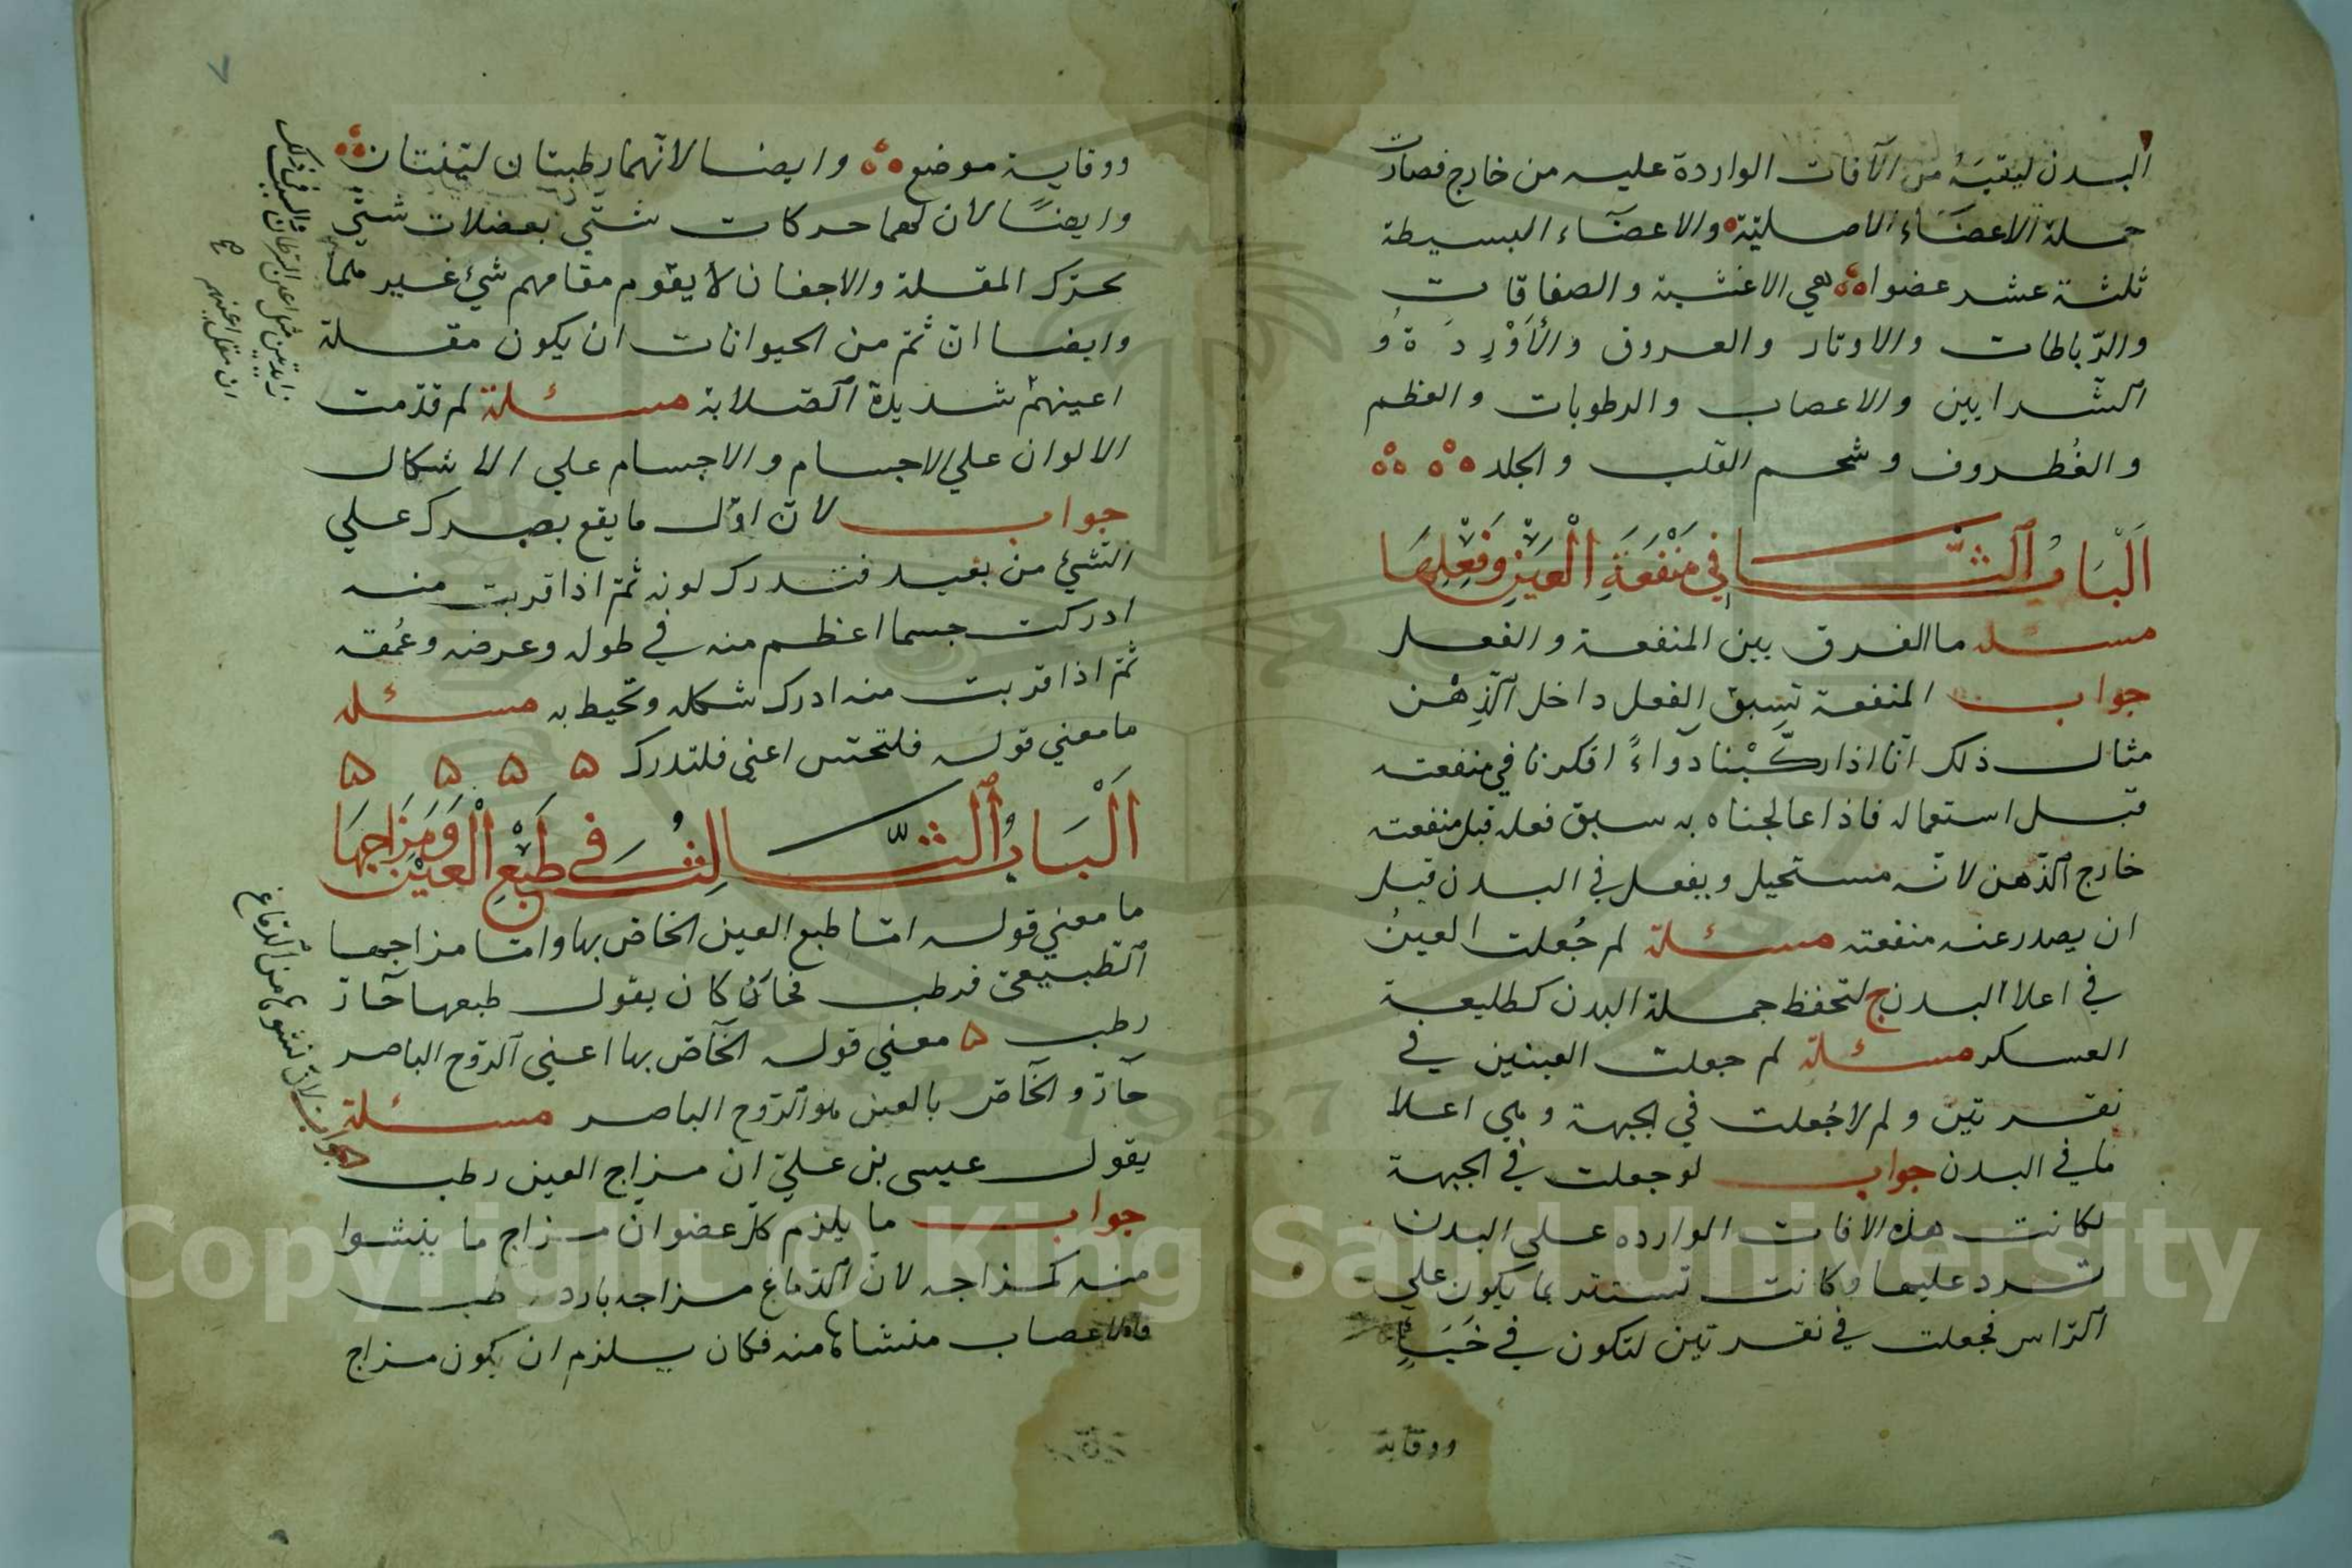 البدن ليقيَهُ من الآفات الواردة عليه من خارج فصارت
جملة الاعضَاء الاصليّة والاعضَاء البسيطة
ثلثة عشر عضوا هي الاغشية والصفاقات
والرّباطات والاوتار والعروق والأَوْرِدَةُ و
الشّرايين والاعصاب والرطوبات والعظم
والغُطروف وشحم القلب والجلد
اَلْبَابُ الثَّانِي فِي مَنْفَعَةِ الْعَيْنِ وَفِعْلِهَا
مسئله ما الفرق بين المنفعة والفعل
جواب المنفعة تسبق الفعل داخل الذِهْن
مثال ذلك انّا اذا ركّبْنا دوَاءً افكرنا في منفعته
قبل استعماله فاذا عالجناه به سبق فعله قبل منفعته
خارج الذّهن لانّه مستحيل ويفعل في البدن قبل
ان يصدر عنه منفعته مسئلة لم جُعلت العينُ
في اعلا البدن ج لتحفظ جملة البدن كطليعة
العسكر مسئلة لم جعلت العينين في
نقرتين ولم لا جُعلت في الجبهة وهي اعلا
ما في البدن جواب لو جعلت في الجبهة
لكانت هذه الافات الوارده على البدن
ترد عليها وكانت تستتر بما يكون علي
الرّاس فجعلت في نقرتين لتكون في خَبَاءٍ
ووقاية
٧
ووقاية موضع وايضا لانّهما رطبتان ليّنتان
وايضًا لان لهما حركات شتّي بعضلات شتّي
تحرّك المقلة والاجفان لا يقوم مقامهم شئ غير هما
وايضا انّ ثمّ من الحيوانات ان يكون مقلة
اعينهمْ شديدة الصّلابة مسئلة لم قدّمت
الالوان علي الاجسام والاجسام علي الاشكال
جواب لانّ اوّل ما يقع بصرك علي
الشّئ من بعيد فتدرك لونه ثمّ اذا قربت منه
ادركت جسما اعظم منه في طوله وعرضه وعُمقه
ثمّ اذا قربت منه ادرك شكله وتحيط به مسئله
ما معني قوله فلتحسّ اعني فلتدرك ۵ ۵ ۵ ۵
اَلْبَابُ الثَّالِثُ فِي طَبْعِ الْعَيْنِ وَمَزَاجِهَا
ما معني قوله امّا طبع العين الخاصّ بها وامّا مزاجها
الطّبيعيّ فرطب فحانَ كان يقول طبعها حَارّ
رطب ۵ معني قوله الخَاصّ بها اعني الرّوح الباصر
حَارّ والخَاصّ بالعين هو الرّوح الباصر مسئلة
يقول عيسى بن عليّ انّ مزاج العين رطب
جواب ما يلزم كلّ عضو انّ مزاج ما ينشوا
منه كمزاجه لانّ الدّماغ مزاجه بارد رطب
فالاعصاب منشاها منه فكان يلزم ان يكون مزاج
زايدتين مثل اعين السرطان
ان مقل اعينهم
جواب لانّ نشوها من الدّماغ